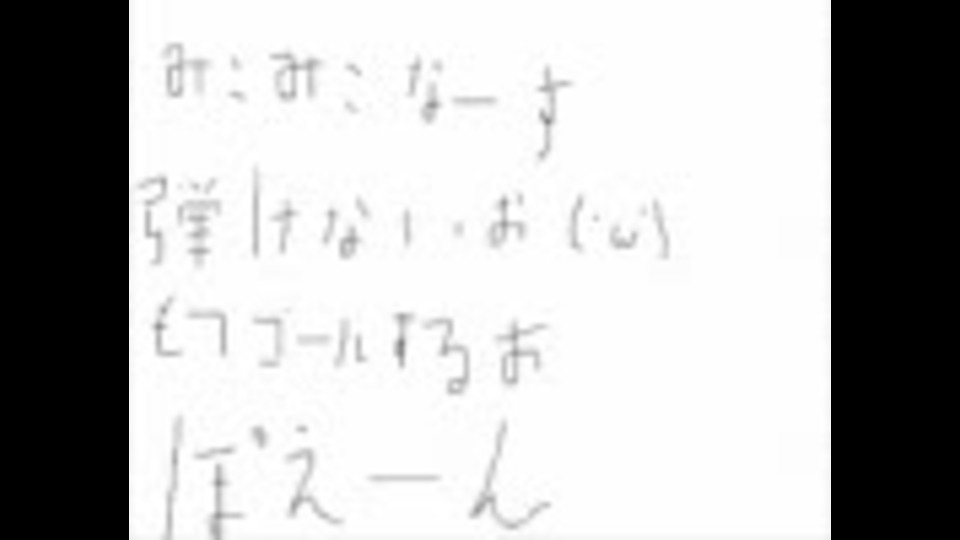 みこみこなーす
弾けないお(・ω・)
モフコールするお
ぼえーん